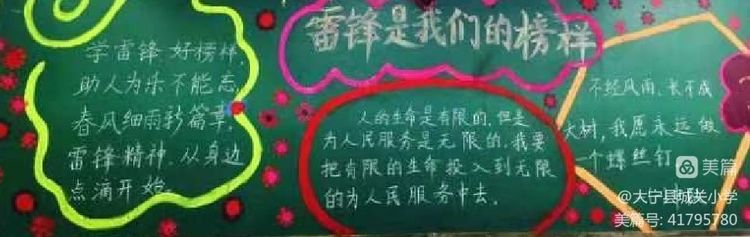 雷锋是我们的榜样
学雷锋 好榜样,
助人为乐不能忘,
春风细雨新篇章,
雷锋精神,从身边
点滴开始。
人的生命是有限的,但是
为人民服务是无限的,我要
把有限的生命投入到无限
的为人民服务中去。
不经风雨,长不成
大树,我愿永远做
一个螺丝钉
美篇
@大宁县城关小学
美篇号: 41795780